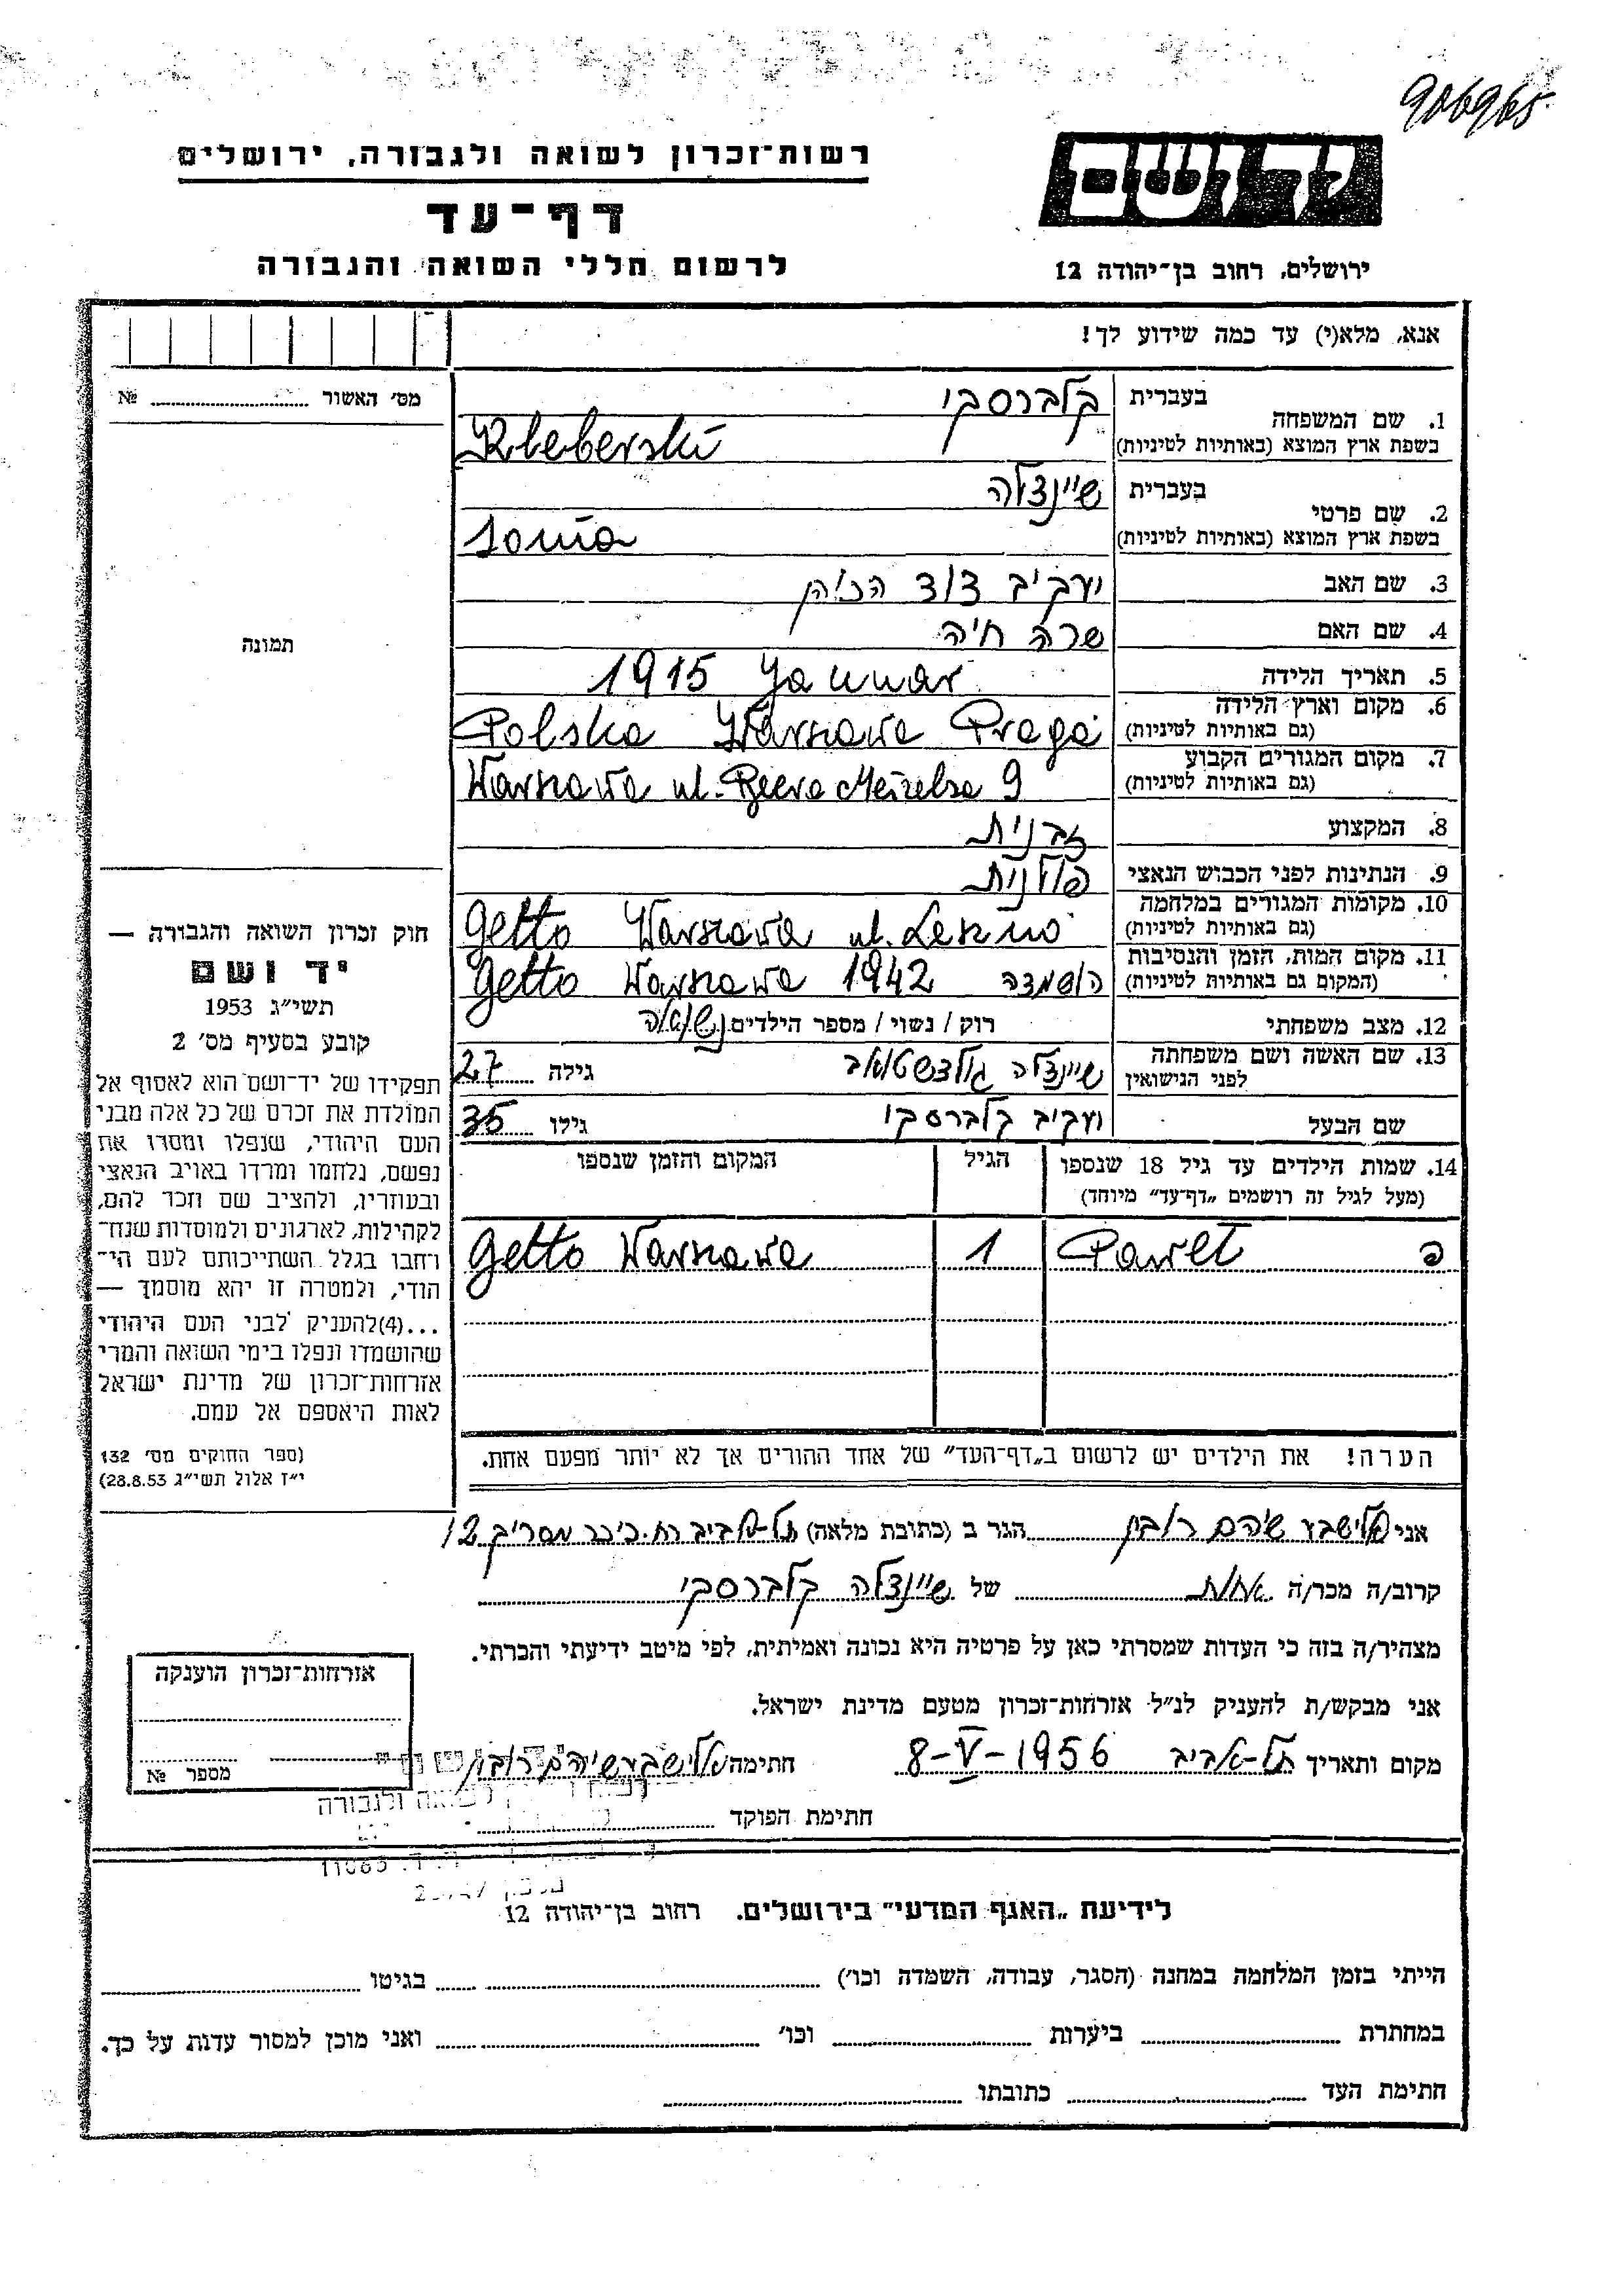 906965
רשות־זכרון לשואה ולגבורה, ירושלים
דף־עד
לרשום חללי השואה והגבורה
יד ושם
ירושלים, רחוב בן־יהודה 12
אנא, מלא(י) עד כמה שידוע לך!
מס׳ האשור № 
1. שם המשפחה
בעברית קלברסקי
בשפת ארץ המוצא (באותיות לטיניות) Kleberski
2. שם פרטי
בעברית שיינדלה
בשפת ארץ המוצא (באותיות לטיניות) Sonia
3. שם האב יעקב דוד הכהן
4. שם האם שרה חיה
5. תאריך הלידה 1915 Januar
6. מקום וארץ הלידה (גם באותיות לטיניות) Polska Warszawa Praga
7. מקום המגורים הקבוע (גם באותיות לטיניות) Warszawa ul. Meizelsa 9
8. המקצוע זבנית
9. הנתינות לפני הכבוש הנאצי פולנית
10. מקומות המגורים במלחמה (גם באותיות לטיניות) Getto Warszawa ul. Leszno
11. מקום המות, הזמן והנסיבות (המקום גם באותיות לטיניות) Getto Warszawa 1942 השמדה
12. מצב משפחתי רוק / נשוי / מספר הילדים נשואה
13. שם האשה ושם משפחתה לפני הנישואין שיינדלה גולדשטוב גילה 27
שם הבעל יעקב קלברסקי גילו 35
14. שמות הילדים עד גיל 18 שנספו הגיל המקום והזמן שנספו
(מעל לגיל זה רושמים „דף־עד״ מיוחד)
פ Paweł 1 Getto Warszawa
הערה! את הילדים יש לרשום ב„דף־העד״ של אחד ההורים אך לא יותר מפעם אחת.
תמונה
חוק זכרון השואה והגבורה —
יד ושם
תשי״ג 1953
קובע בסעיף מס׳ 2
תפקידו של יד־ושם הוא לאסוף אל
המולדת את זכרם של כל אלה מבני
העם היהודי, שנפלו ומסרו את
נפשם, נלחמו ומרדו באויב הנאצי
ובעוזריו, ולהציב שם וזכר להם,
לקהילות, לארגונים ולמוסדות שנח־
רחבו בגלל השתייכותם לעם הי־
הודי, ולמטרה זו יהא מוסמך —
...(4)להעניק לבני העם היהודי
שהושמדו ונפלו בימי השואה והמרי
אזרחות־זכרון של מדינת ישראל
לאות היאספם אל עמם.
(ספר החוקים מס׳ 132
י״ז אלול תשי״ג 28.8.53)
אני אלישבע שוהם רובין הגר ב (כתובת מלאה) תל-אביב רח. כיכר מסריק 12
קרוב/ה מכר/ה אחות של שיינדלה קלברסקי
מצהיר/ה בזה כי העדות שמסרתי כאן על פרטיה היא נכונה ואמיתית, לפי מיטב ידיעתי והכרתי.
אני מבקש/ת להעניק לנ״ל אזרחות־זכרון מטעם מדינת ישראל.
מקום ותאריך תל-אביב 8-V-1956 חתימה אלישבע שוהם רובין
אזרחות־זכרון הוענקה
מספר №
חתימת הפוקד
ולגבורה
11083
לידיעת „האגף המדעי״ בירושלים. רחוב בן־יהודה 12
הייתי בזמן המלחמה במחנה (הסגר, עבודה, השמדה וכו׳) בגיטו
במחתרת ביערות וכו׳ ואני מוכן למסור עדות על כך.
חתימת העד כתובתו